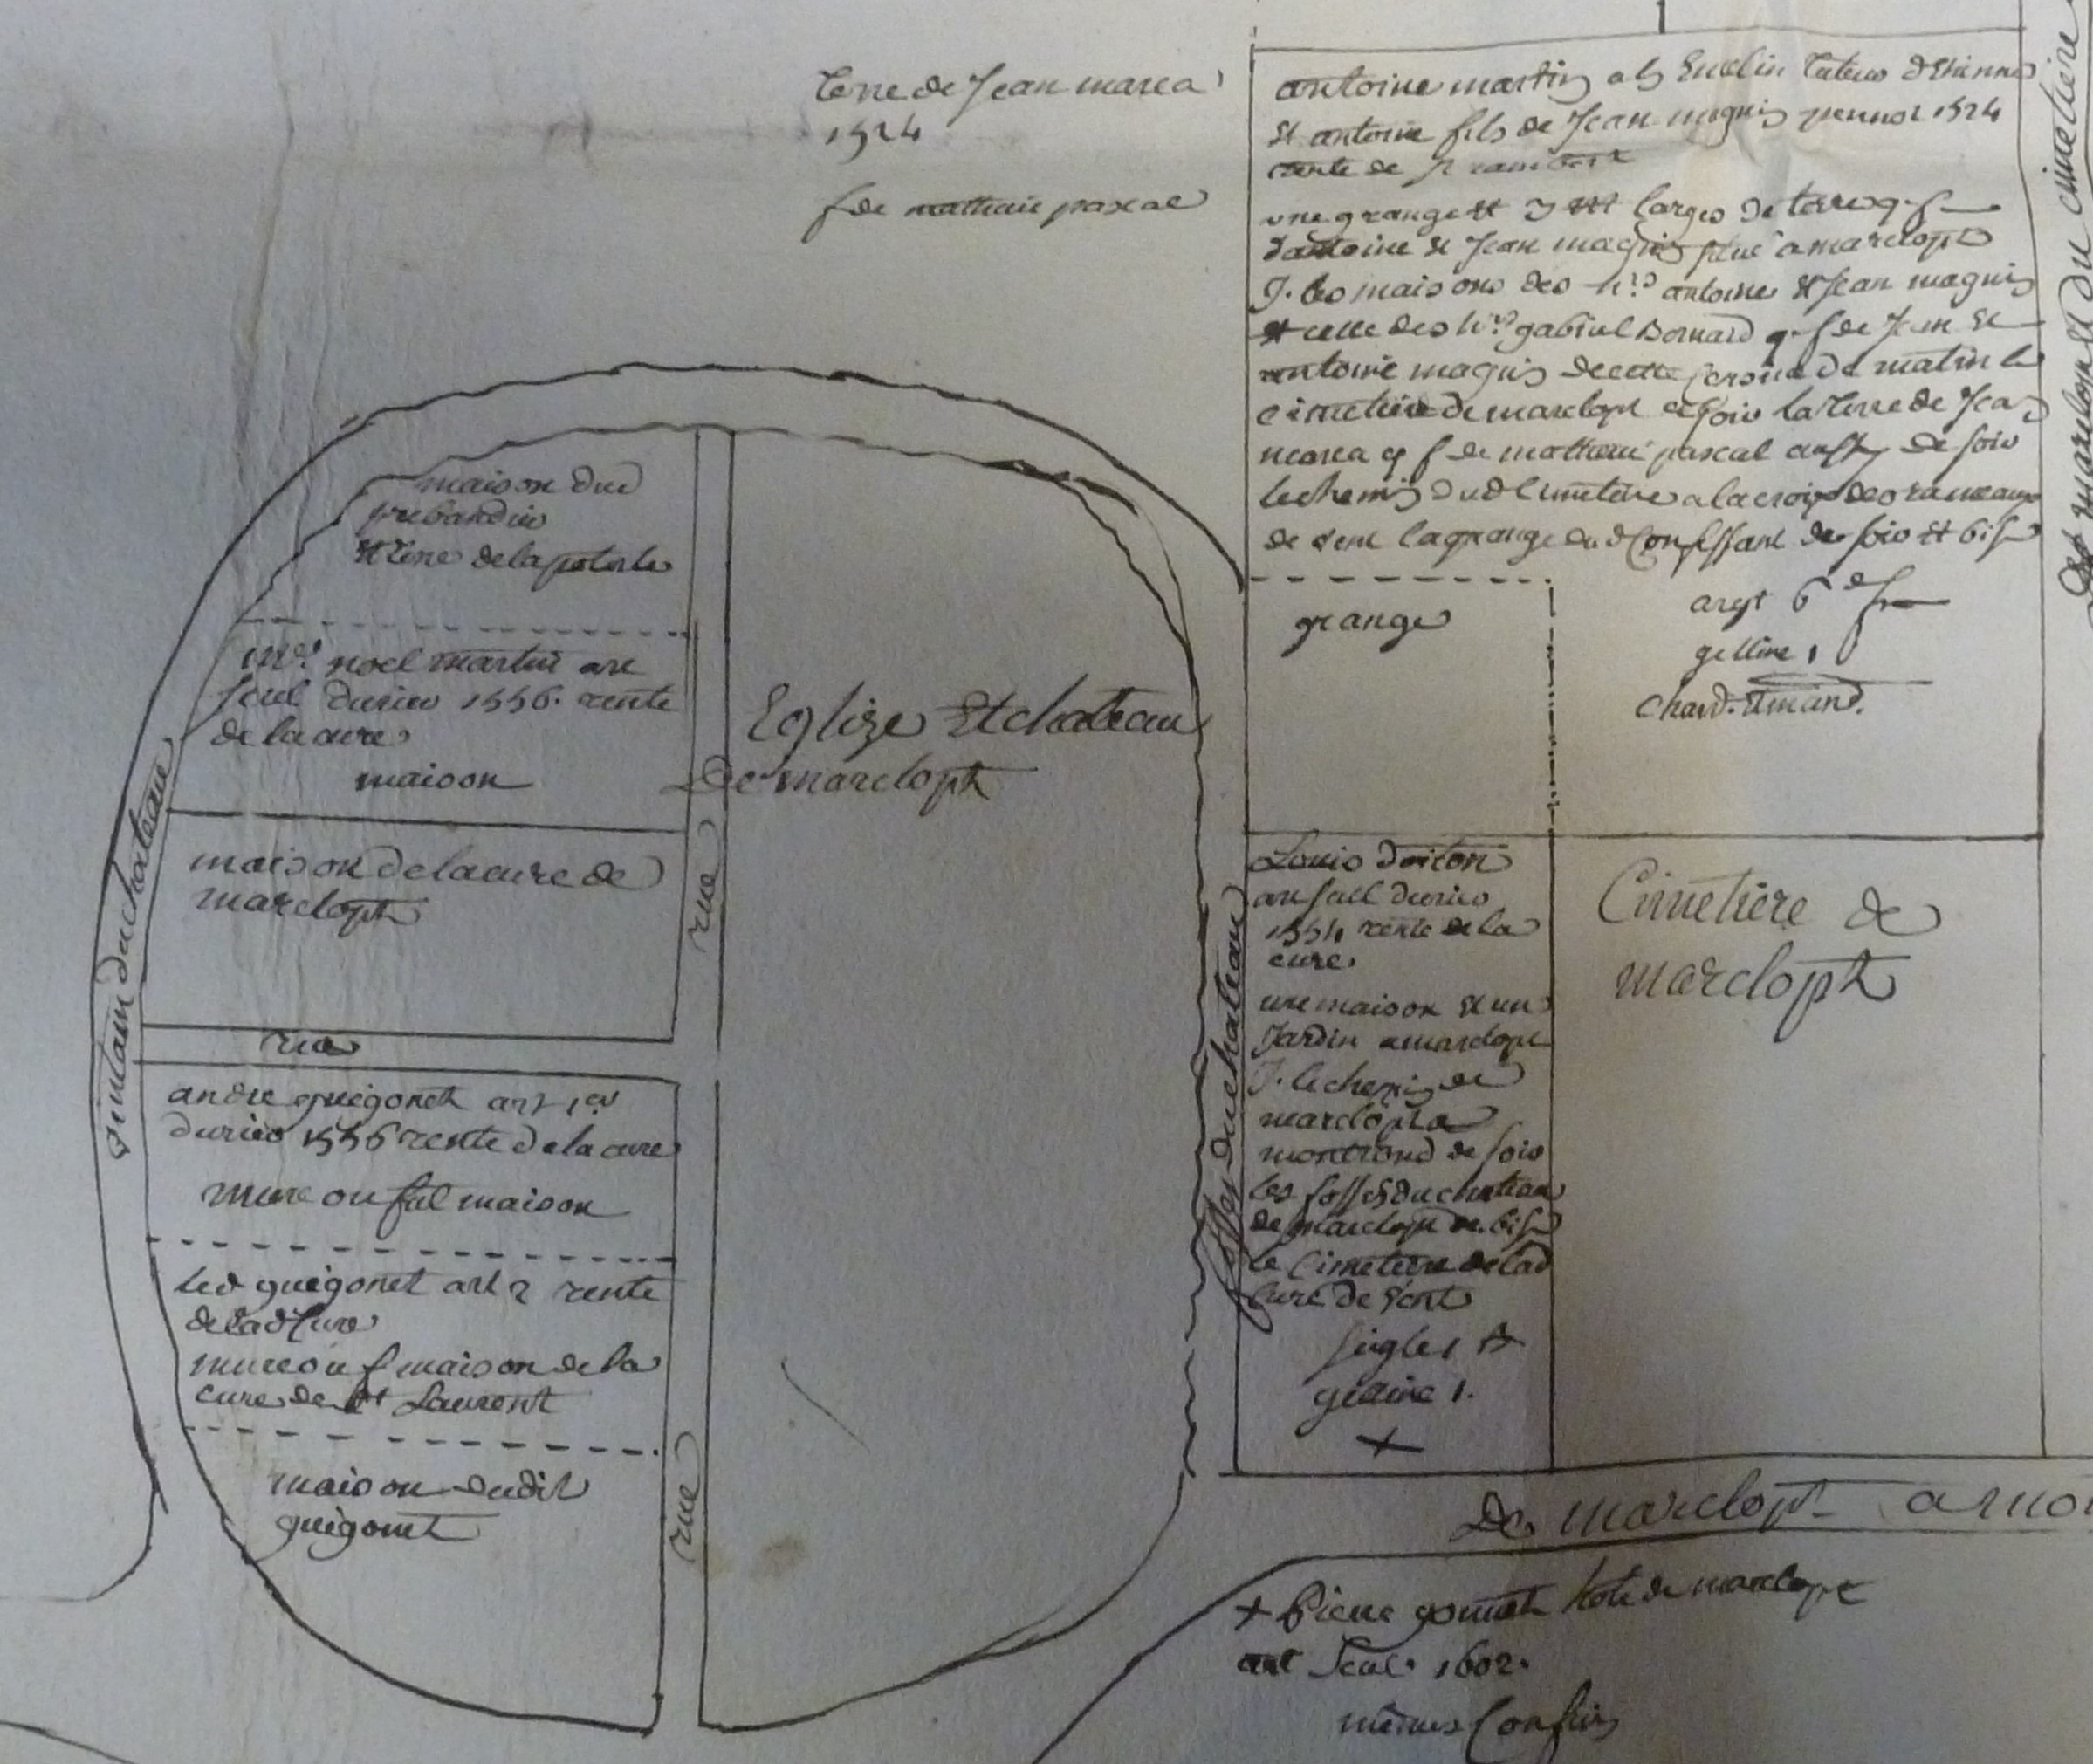 terre de Jean marca
1524
f de mathieu pascal
antoine martin als Emelin tuteur d'Etienne
et antoine fils de Jean magnin 1524
rente de st rambert
une grange et larges de terre q. f
d'antoine et Jean magnin situé a marclopt
J. les maisons des hrs antoine et Jean magnin
et celle des hrs gabriel Bernard q. f de Jean et
antoine magnin de matin le
cimetiere de marclopt et soir la terre de Jean
marca q f de mathieu pascal aussy de soir
le chemin dud Cimetiere a la croix des rameaux
de vent la grange dud Confessant de soir et bise
argt 6 d
geline 1
Chavd. st mand.
grange
maison du
prebandier
et terre de la
noel martin art
seul du rico 1556. rente
de la cure
maison
Eglize Et chateau
De marclopt
maison de la cure de
marclopt
rue
rue
quintain du chateau
andre guigonet art 1er
du rico 1556 rente de la cure
mure ou fut maison
led guigonet art 2 rente
de lad Cure
mure ou f maison de la
cure de st Laurent
maison dudit
guigonet
rue
fossés du chateau
Louis
art seul du rico
1554 rente de la
cure
une maison et un
Jardin a marclopt
J. le chemin de
marclopt a
montrond de soir
les fossés du chateau
de marclopt de bise
le Cimetiere de lad
Cure de vent
seigle 1
geline 1.
+
Cimetière de
marclopt
De marclopt a mo
+ Pierre hote de marclopt
art Seul 1602.
mêmes Confins
de marclopt du cimetiere